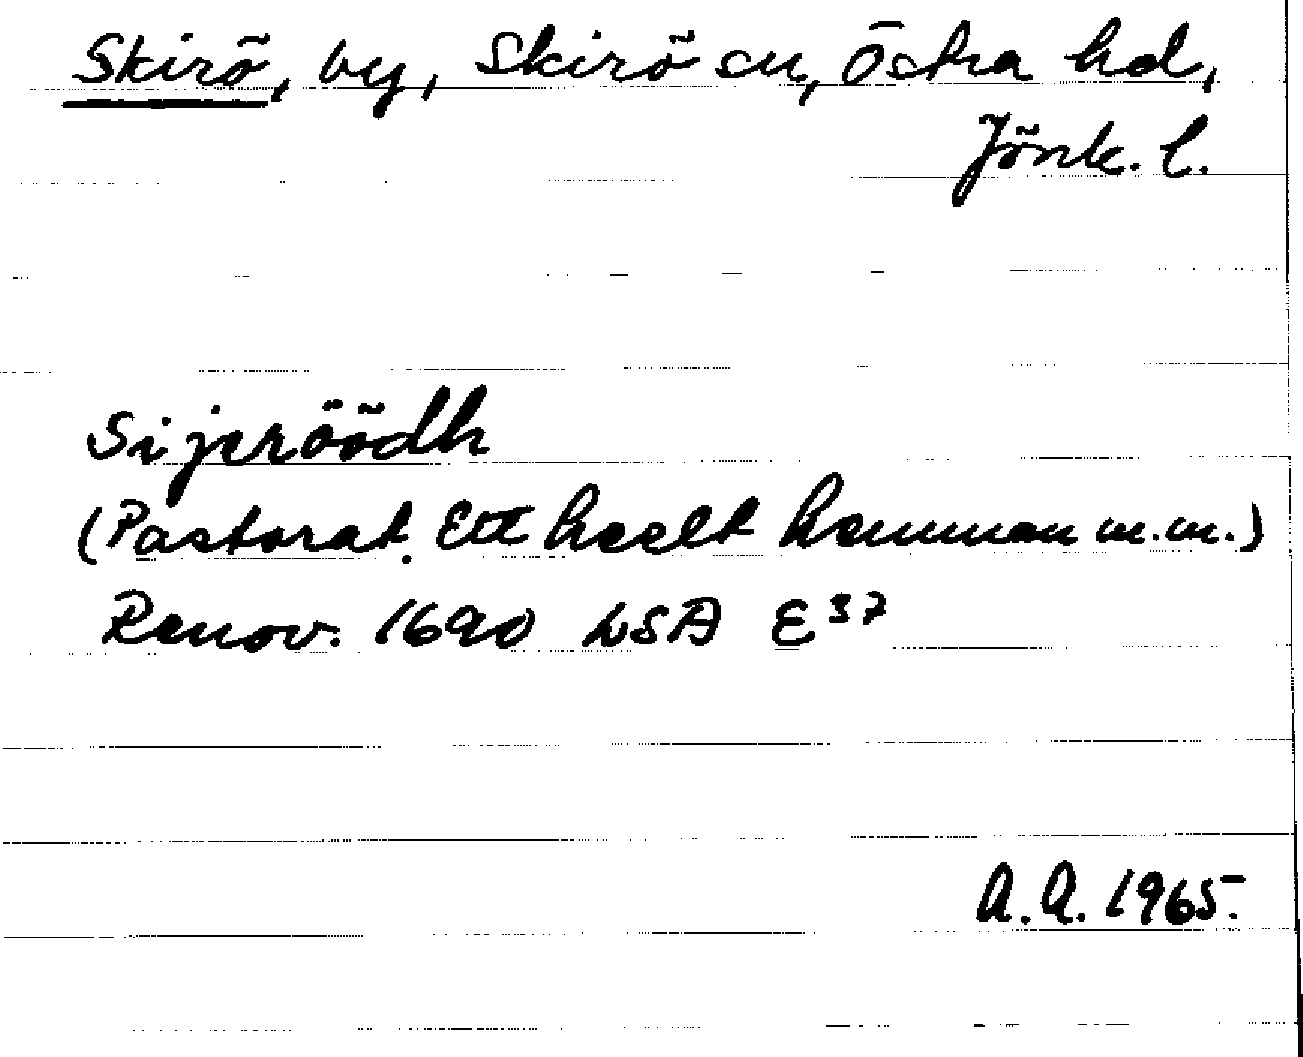 Skirö, by, Skirö sn, Östra hd,
Jönk. l.
Sijeröödh
(Pastorat. Ett heelt hemman m.m.)
Renov. 1690 LSA E 37
A.A. 1965.